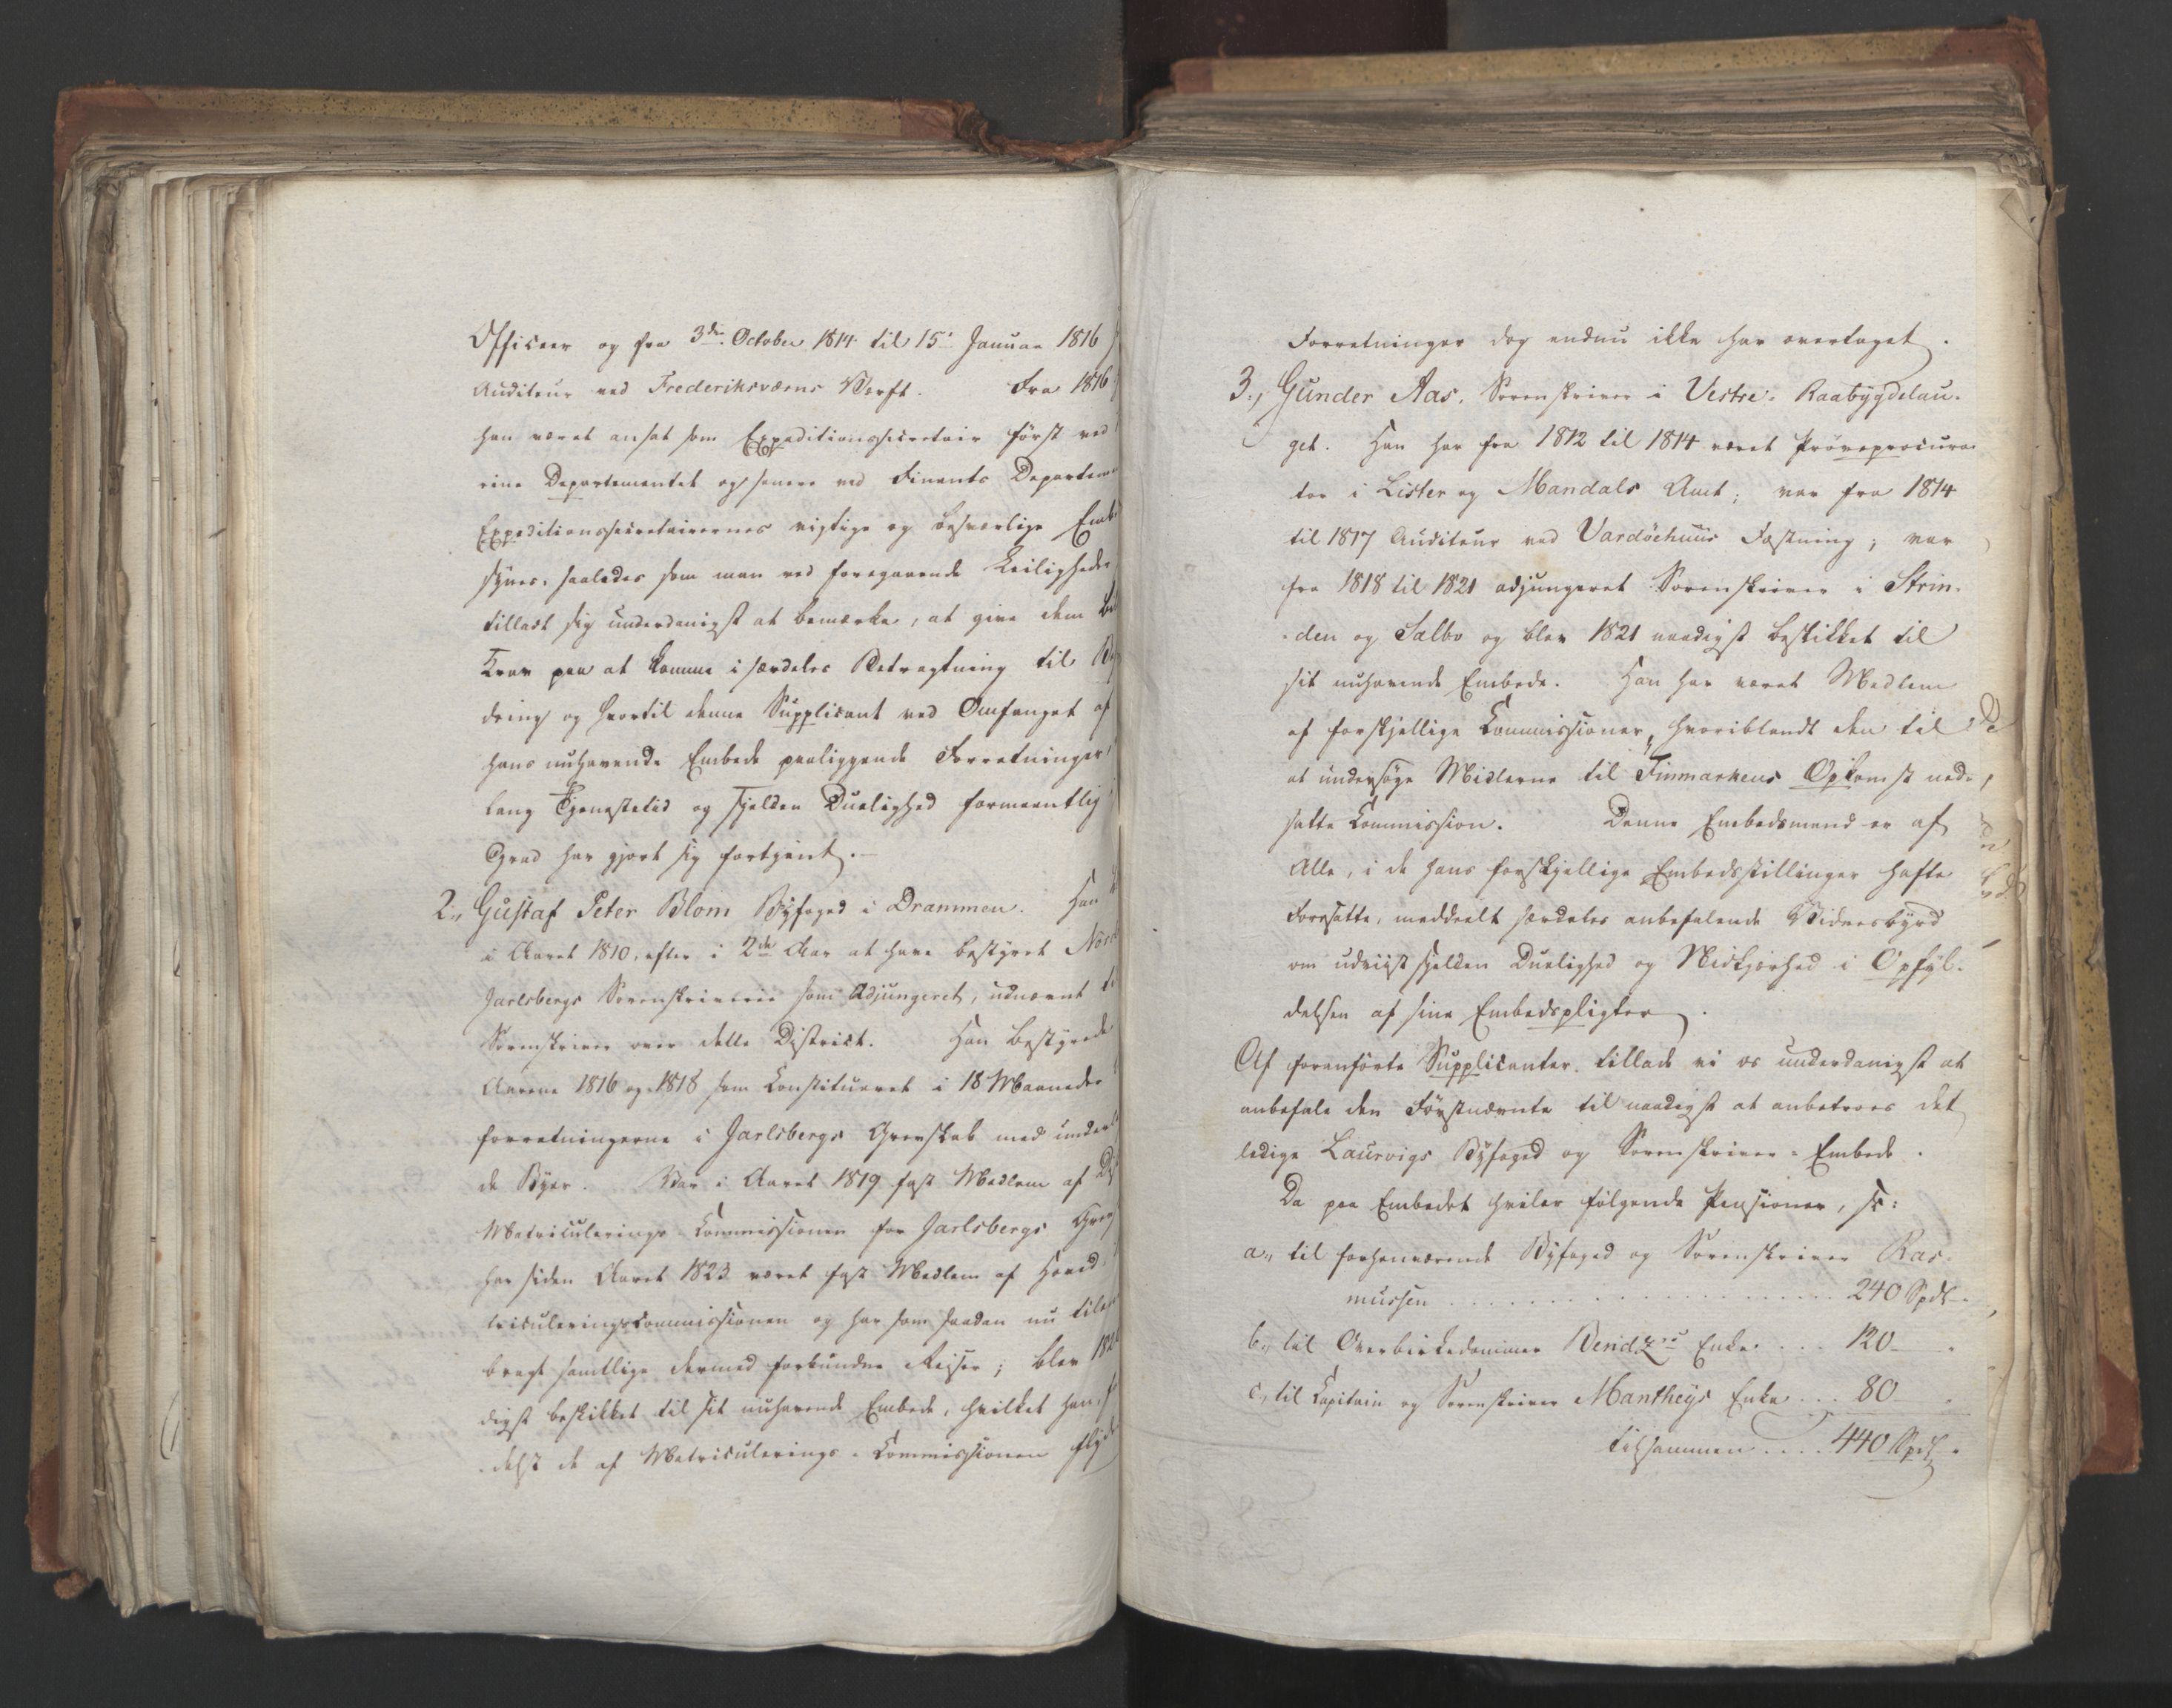 Officeer og fra 3die October 1814 til 15de Januar 1816
Auditeur ved Frederiksværns Værft. Fra 1816
han været ansat som Expeditionssecretair först ved
rine Departementet og senere ved Finants Departem
Expeditionssecretairernes vigtige og besværlige Emb
synes, saaledes som man ved foregaaende Leiligheder
tilladt sig underdanigst at bemærke, at give dem
Krav paa at komme i særdeles Betragtning til
dring og hvortil denne Supplicant ved Omfanget af
hans nuhavende Embede paaliggende Forretninger,
lang Tjenestetid og sjelden Duelighed formeentlig
Grad har gjort sig fortjent.-
2., Gustaf Peter Blom Byfoged i Drammen. Han
i Aaret 1810, efter i 2de Aar at have bestyret Nord
Jarlsbergs Sorenskriverie som Adjungeret, udnævnt
Sorenskriver over dette District. Han bestyrede
Aarene 1816 og 1818 som Constitueret i 18 Maaneder
forretningerne i Jarlsbergs Grevskab med under
de Byer. Var i Aaret 1819 fast Medlem af Di
Matriculerings Commissionen for Jarlsbergs Grev
har siden Aaret 1823 været fast Medlem af Hoved
triculeringscommissionen og har som saadan nu tilen
bragt samtlige dermed forbundne Reiser; blev 182
digst beskikket til sit nuhavende Embede, hvilket han,
delst de af Matriculerings-Commissionen flyde
Forretninger dog endnu ikke har overtaget.
3., Gunder Aas, Sorenskriver i Vestre-Raabygdelau-
get. Han har fra 1812 til 1814 været Prøveprocura-
tor i Lister og Mandals Amt; var fra 1814
til 1817 Auditeur ved Vardöehuus Fæstning; var
fra 1818 til 1821 adjungeret Sorenskriver i Strin-
den og Sælbo og blev 1821 naadigst beskikket til
sit nuhavende Embede. Han har været Medlem
af forskjellige Commissioner, hvoriblandt den til
at undersöge Midlerne til Finmarkens Opkomst ned-
satte Commission. Denne Embedsmand er af
Alle, i de hans forskjellige Embedsstillinger hafte
Foresatte, meddeelt særdeles anbefalende Vidnesbyrd
om udviist sjelden Duelighed og Nidkjærhed i Opfyl-
delsen af sine Embedspligter.
Af foranførte Supplicanter tillade vi os underdanigst at
anbefale den Förstnævnte til naadigst at anbetroes det
ledige Laurvigs Byfoged og Sorenskriver-Embede.
Da paa Embedet hviler følgende Pensioner, sc:
a., til forhenværende Byfoged og Sorenskriver Ras-
mussen . . . . . . . . 240 Spdlr.
b., til Overbirkedommer Bendz's Enke . . . 120 —
c., til Capitain og Sorenskriver Mantheys Enke . . . 80
tilsammen . . . . 440 Spdlr.